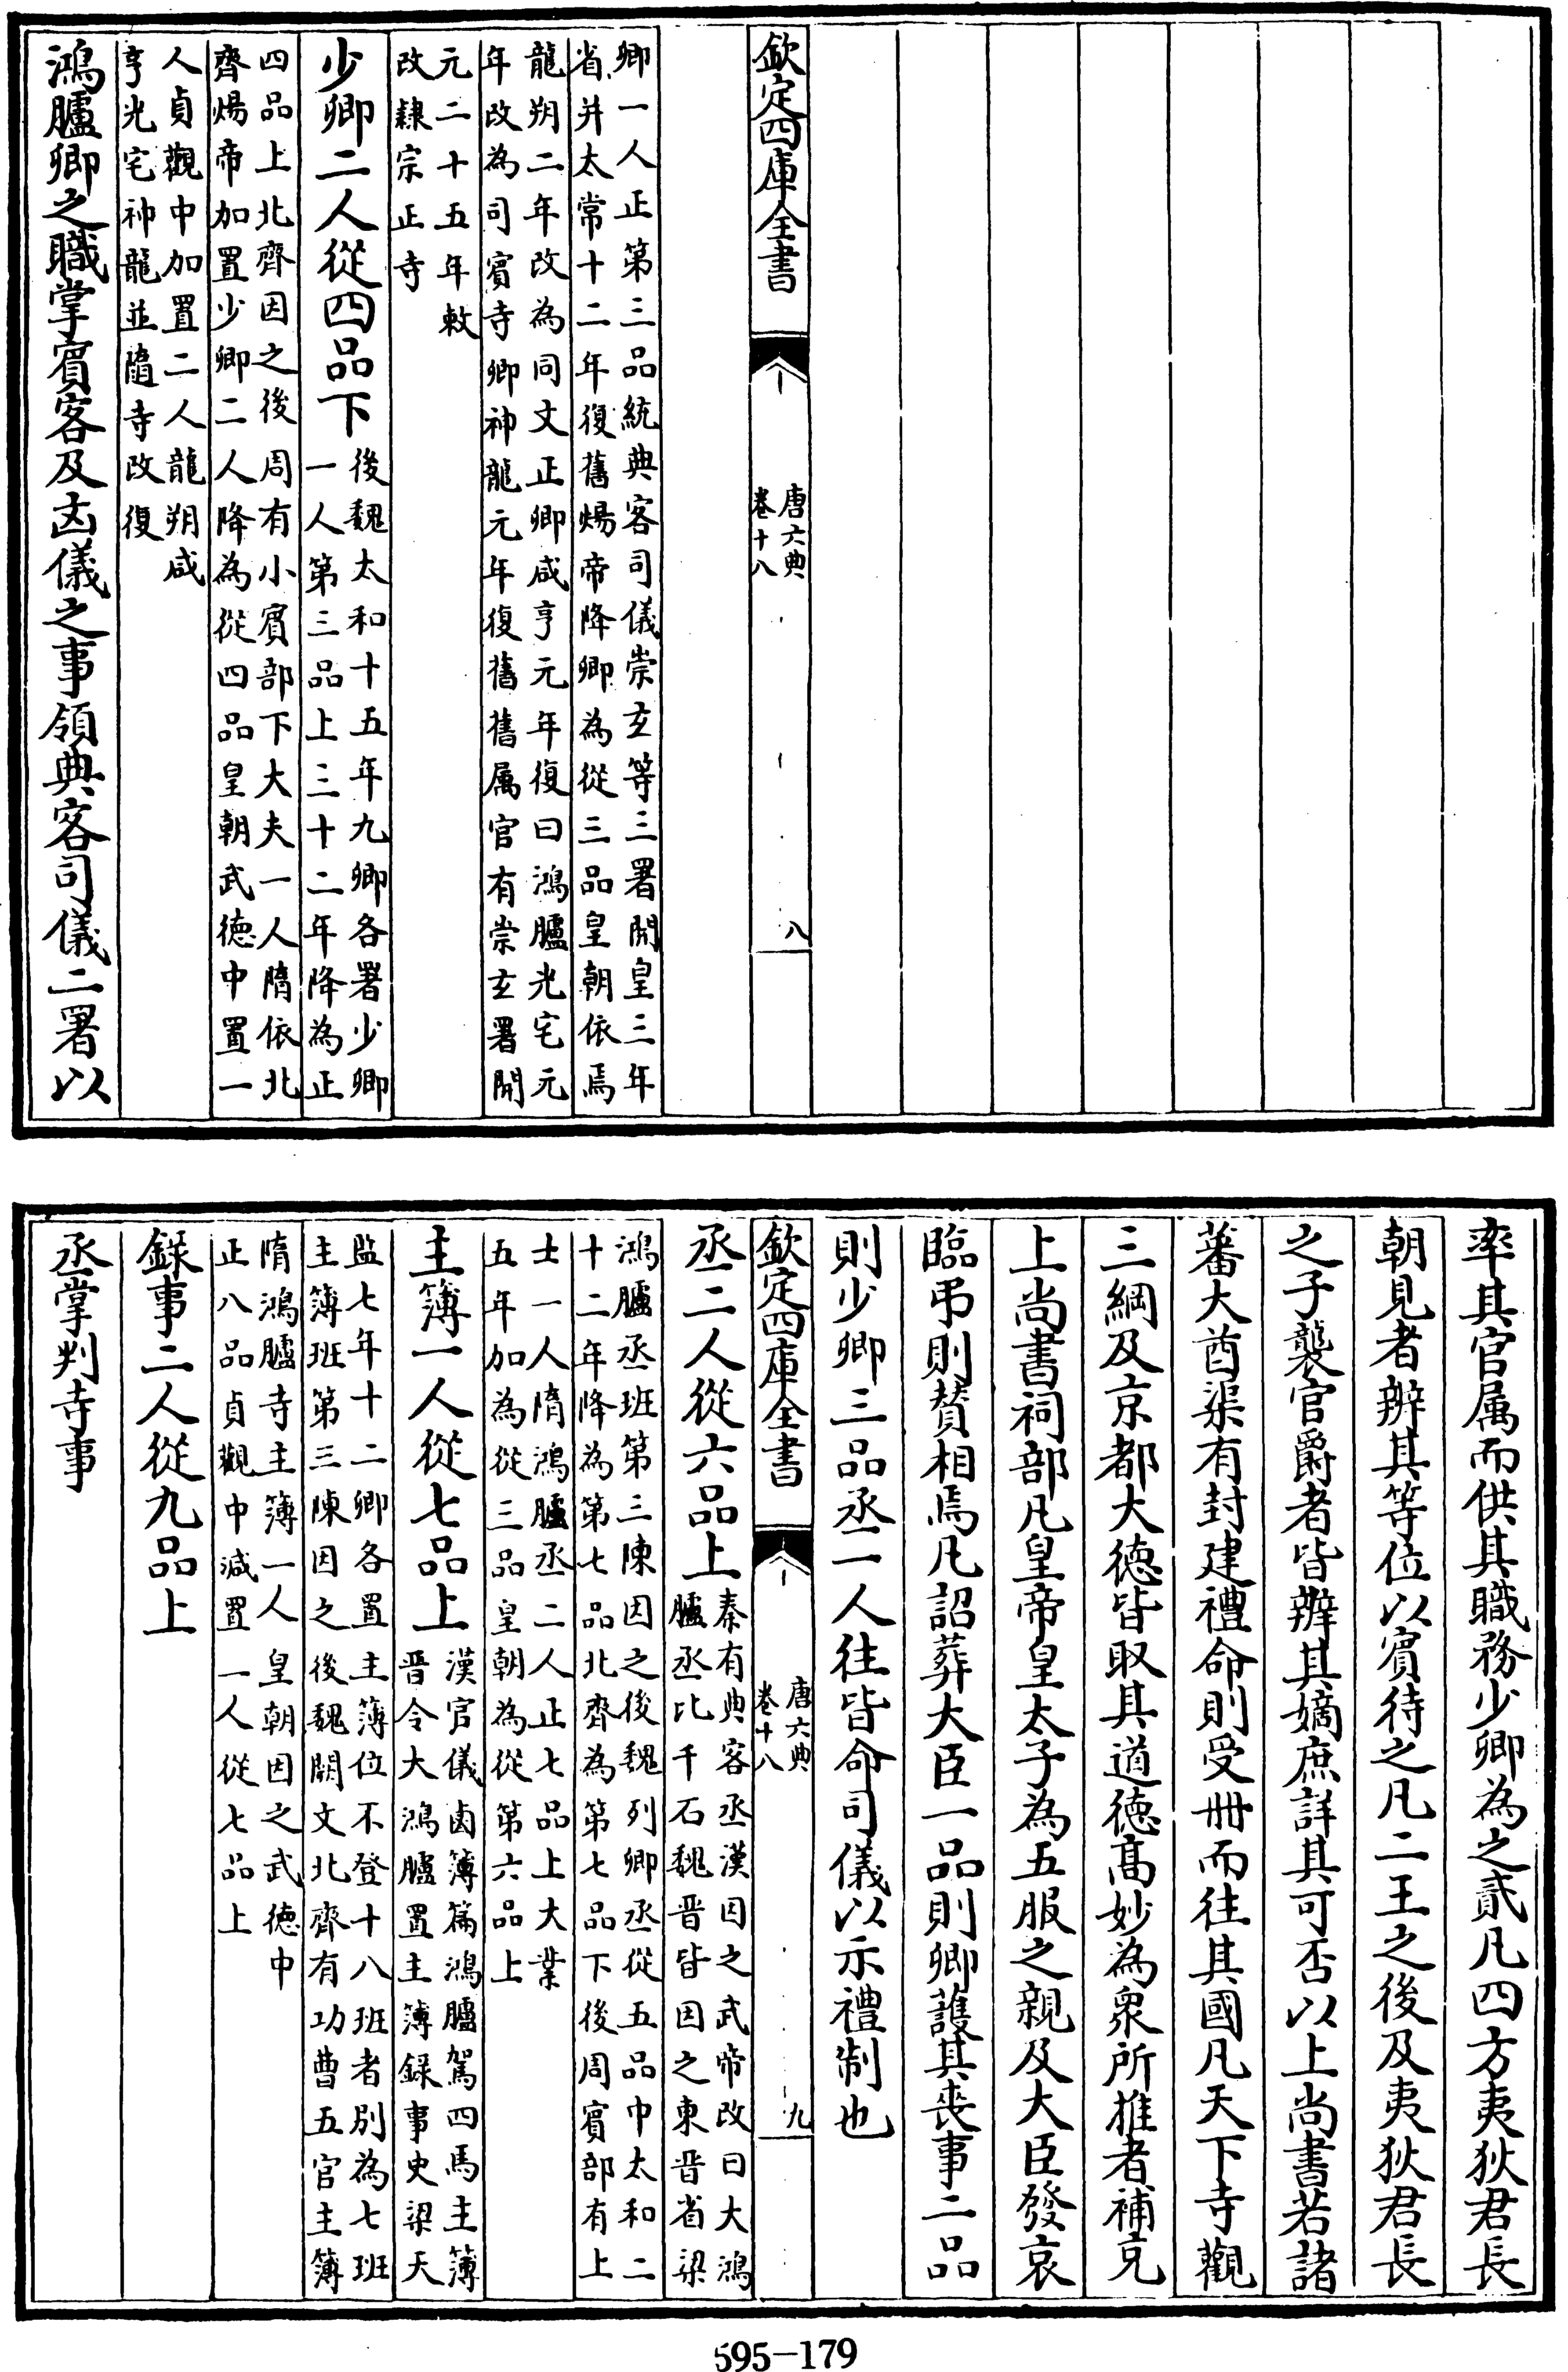 欽定四庫全書
唐六典
卷十八
八
卿一人正第三品統典客司儀崇玄等三署開皇三年
省并太常十二年復舊煬帝降卿為從三品皇朝依焉
龍朔二年改為同文正卿咸亨元年復曰鴻臚光宅元
年改為司賓寺卿神龍元年復舊舊屬官有崇玄署開
元二十五年敕
改隸宗正寺
少卿二人從四品下
後魏太和十五年九卿各署少卿
一人第三品上三十二年降為正
四品上北齊因之後周有小賓部下大夫一人隋依北
齊煬帝加置少卿二人降為從四品皇朝武德中置一
人貞觀中加置二人龍朔咸
亨光宅神龍並隨寺改復
鴻臚卿之職掌賓客及凶儀之事領典客司儀二署以
率其官屬而供其職務少卿為之貳凡四方夷狄君長
朝見者辨其等位以賓待之凡二王之後及夷狄君長
之子襲官爵者皆辨其嫡庶詳其可否以上尚書若諸
蕃大酋渠有封建禮命則受冊而往其國凡天下寺觀
三綱及京都大德皆取其道德髙妙為衆所推者補充
上尚書祠部凡皇帝皇太子為五服之親及大臣發哀
臨弔則贊相焉凡詔葬大臣一品則卿護其喪事二品
則少卿三品丞一人往皆命司儀以示禮制也
欽定四庫全書
唐六典
卷十八
九
丞二人從六品上
秦有典客丞漢因之武帝改曰大鴻
臚丞比千石魏晉皆因之東晉省梁
鴻臚丞班第三陳因之後魏列卿丞從五品中太和二
十二年降為第七品北齊為第七品下後周賓部有上
士一人隋鴻臚丞二人正七品上大業
五年加為從三品皇朝為從第六品上
主簿一人從七品上
漢官儀鹵簿篇鴻臚駕四馬主簿
晉令大鴻臚置主簿録事史梁天
監七年十二卿各置主簿位不登十八班者别為七班
主簿班第三陳因之後魏闕文北齊有功曹五官主簿
隋鴻臚寺主簿一人皇朝因之武德中
正八品貞觀中減置一人從七品上
錄事二人從九品上
丞掌判寺事
595-179